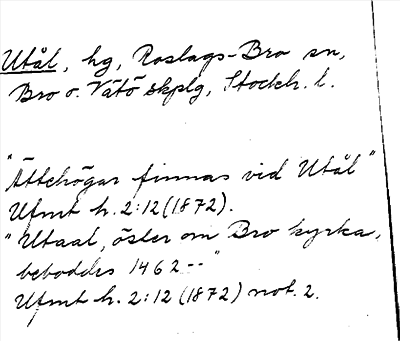 Utål, hg, Roslags-Bro sn,
Bro o. Vätö skplg, Stockh. l.
"Ättehögar finnas vid Utål"
Ufmt h. 2:12 (1872).
"Utaal, öster om Bro kyrka,
beboddes 1462--"
Ufmt h. 2:12 (1872) not. 2.